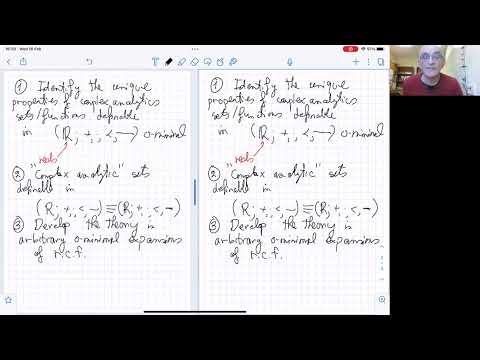 ① Identify the unique
properties of complex analytics
sets/functions definable
in (ℝ; +, ·, <, —) o-minimal
"reals"
② "Complex analytic" sets
definable in
(R; +, ·, <, —) ≡ (ℝ; +, ·, <, —)
③ Develop the theory is
arbitrary o-minimal expansions
of r.c.f.
① Identify the unique
properties of complex analytics
sets/functions definable
in (ℝ; +, ·, <, —) o-minimal
"reals"
② "Complex analytic" sets
definable in
(R; +, ·, <, —) ≡ (ℝ; +, ·, <, —)
③ Develop the theory is
arbitrary o-minimal expansions
of r.c.f.